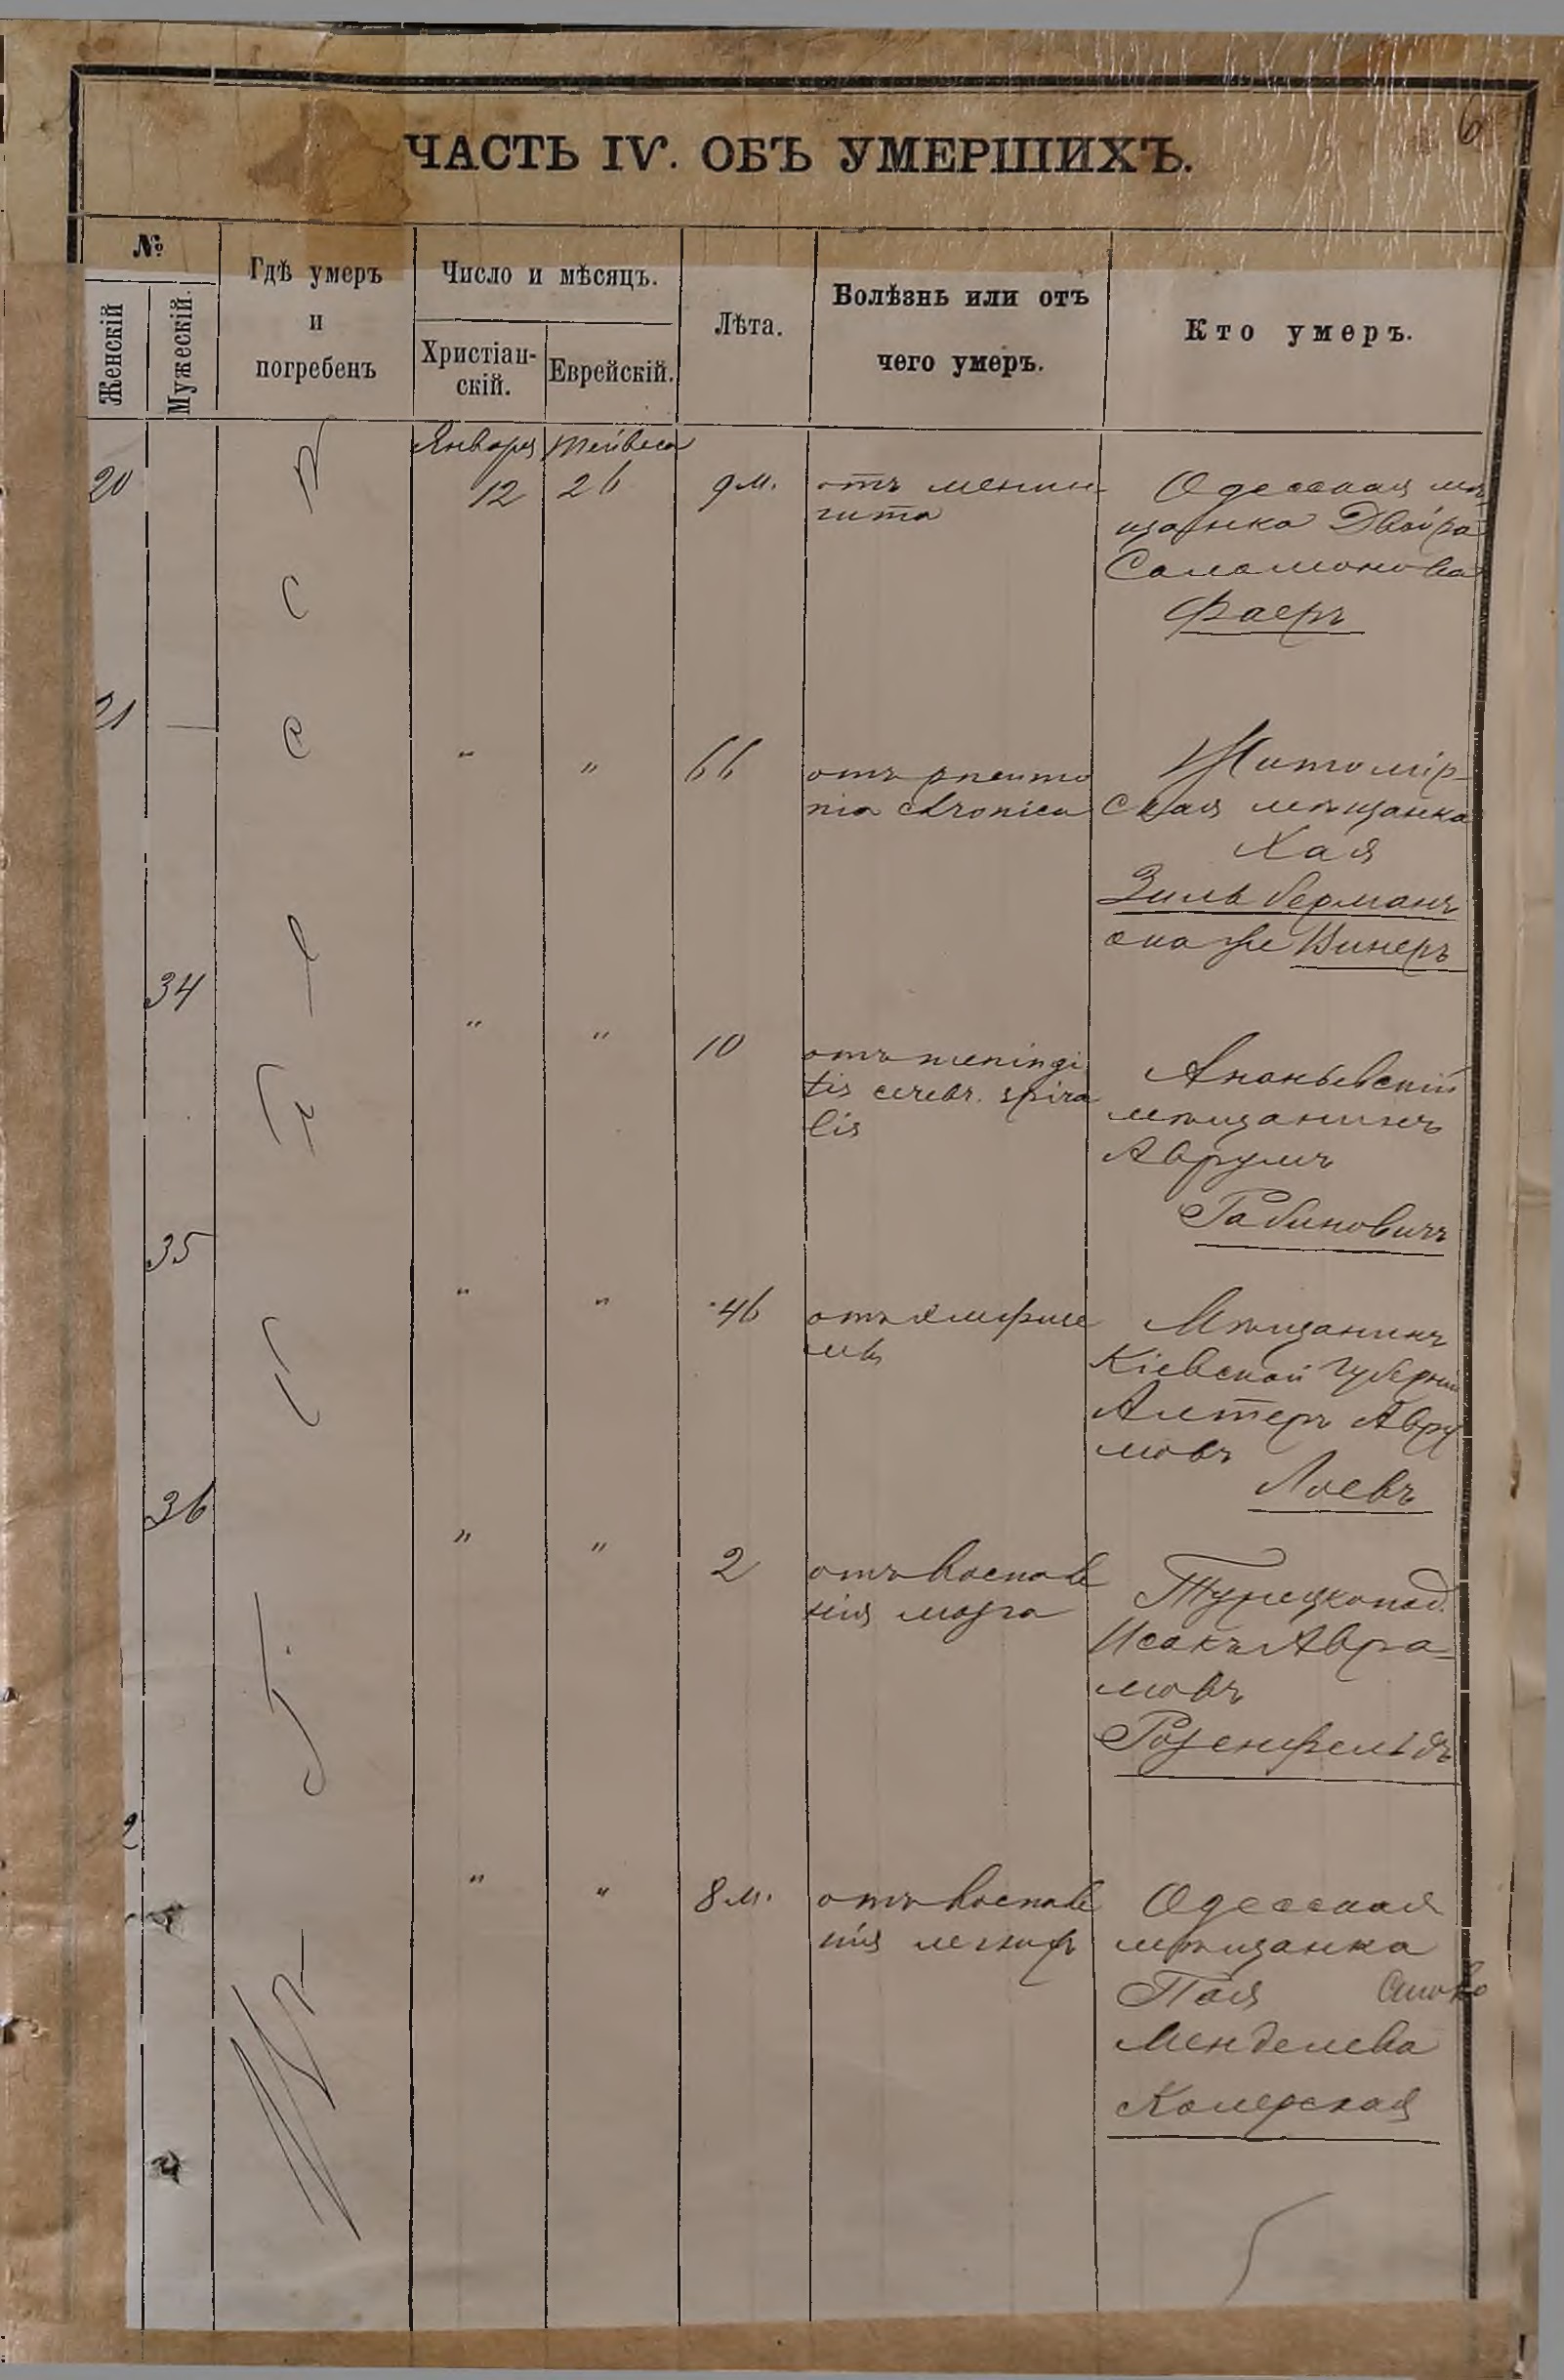 6
ЧАСТЬ IV. ОБЪ УМЕРШИХЪ.
№
Женскій
Мужескій.
Гдѣ умеръ
и
погребенъ
Число и мѣсяцъ.
Христіан-
скій.
Еврейскій.
Лѣта.
Болѣзнь или отъ
чего умеръ.
Кто умеръ.
Января Тейвеса
20 12 26 9 м. отъ менин-
гита
Одесская мѣ-
щанка Двойра
Саламонова
Фаеръ
21 — " " 66 отъ pneumo
nia chronica
Житомір-
ская мѣщанка
Хая
Зильберманъ
она же Винеръ
34 " " 10 отъ meningi
tis cerebr. spina
lis
Ананьевскій
мѣщанинъ
Аврумъ
Рабиновичъ
35 " " 46 отъ эмфизе
мы
Мѣщанинъ
Кіевской губерніи
Алтеръ Авру
мовъ
Лоевъ
36 " " 2 отъ воспале
нія мозга
Турецкопод.
Исакъ Авра-
мовъ
Розенфельдъ
2 " " 8 м. отъ воспале
нія легкихъ
Одесская
мѣщанка
Поля
Менделева
Комерская